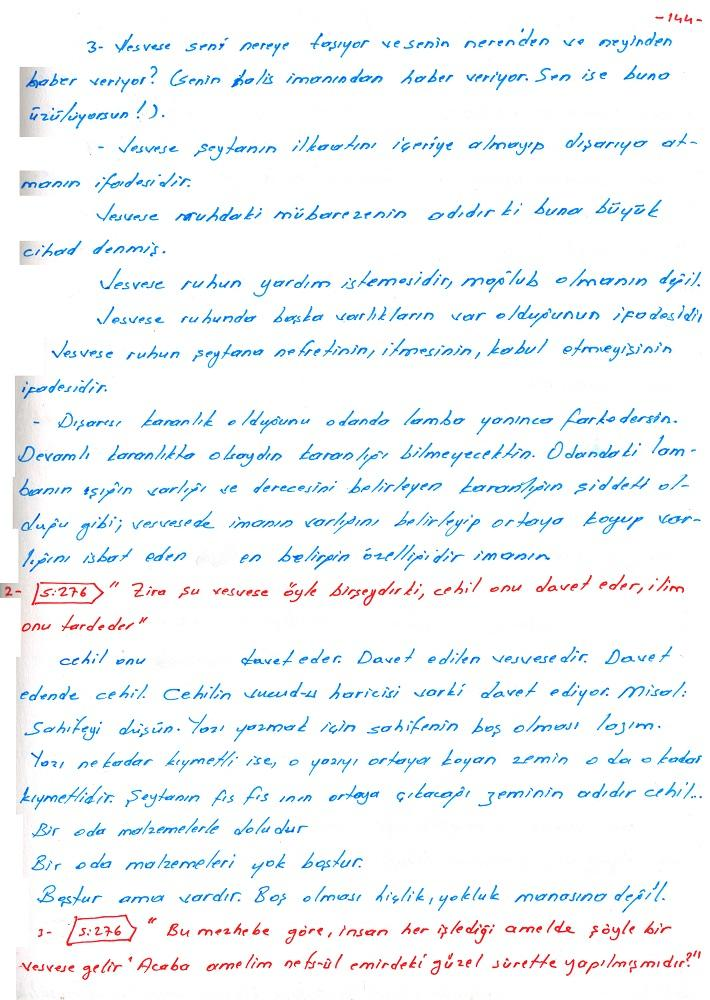 -144-
3- Vesvese seni nereye taşıyor ve senin neren'den ve neyinden
haber veriyor? (Senin halis imanından haber veriyor. Sen ise buna
üzülüyorsun!).
- Vesvese şeytanın ilkaatını içeriye almayıp dışarıya at-
manın ifadesidir.
Vesvese ruhdaki mübarezenin adıdır ki buna büyük
cihad denmiş.
Vesvese ruhun yardım istemesidir, mağlub olmanın değil.
Vesvese ruhunda başka varlıkların var olduğunun ifadesidir
Vesvese ruhun şeytana nefretinin, itmesinin, kabul etmeyişinin
ifadesidir.
- Dışarısı karanlık olduğunu odanda lamba yanınca farkedersin.
Devamlı karanlıkta olsaydın karanlığı bilmeyecektin. Odandaki lam-
banın ışığın varlığı ve derecesini belirleyen karanlığın şiddeti ol-
duğu gibi; vesvesede imanın varlığını belirleyip ortaya koyup var-
lığını isbat eden en belirgin özelliğidir imanın
2- S:276 " Zira şu vesvese öyle birşeydirki, cehil onu davet eder, ilim
onu tardeder"
cehil onu davet eder. Davet edilen vesvesedir. Davet
edende cehil. Cehilin vucud-u haricisi varki davet ediyor. Misal:
Sahifeyi düşün. Yazı yazmak için sahifenin boş olması lazım.
Yazı nekadar kıymetli ise, o yazıyı ortaya koyan zemin o da o kadar
kıymetlidir. Şeytanın fis fis ının ortaya çıkacağı zeminin adıdır cehil...
Bir oda malzemelerle doludur
Bir oda malzemeleri yok boştur.
Boştur ama vardır. Boş olması hiçlik, yokluk manasına değil.
3- S:276 " Bu mezhebe göre, insan her işlediği amelde şöyle bir
vesvese gelir 'Acaba amelim nefs-ül emirdeki güzel sürette yapılmışmıdır?"